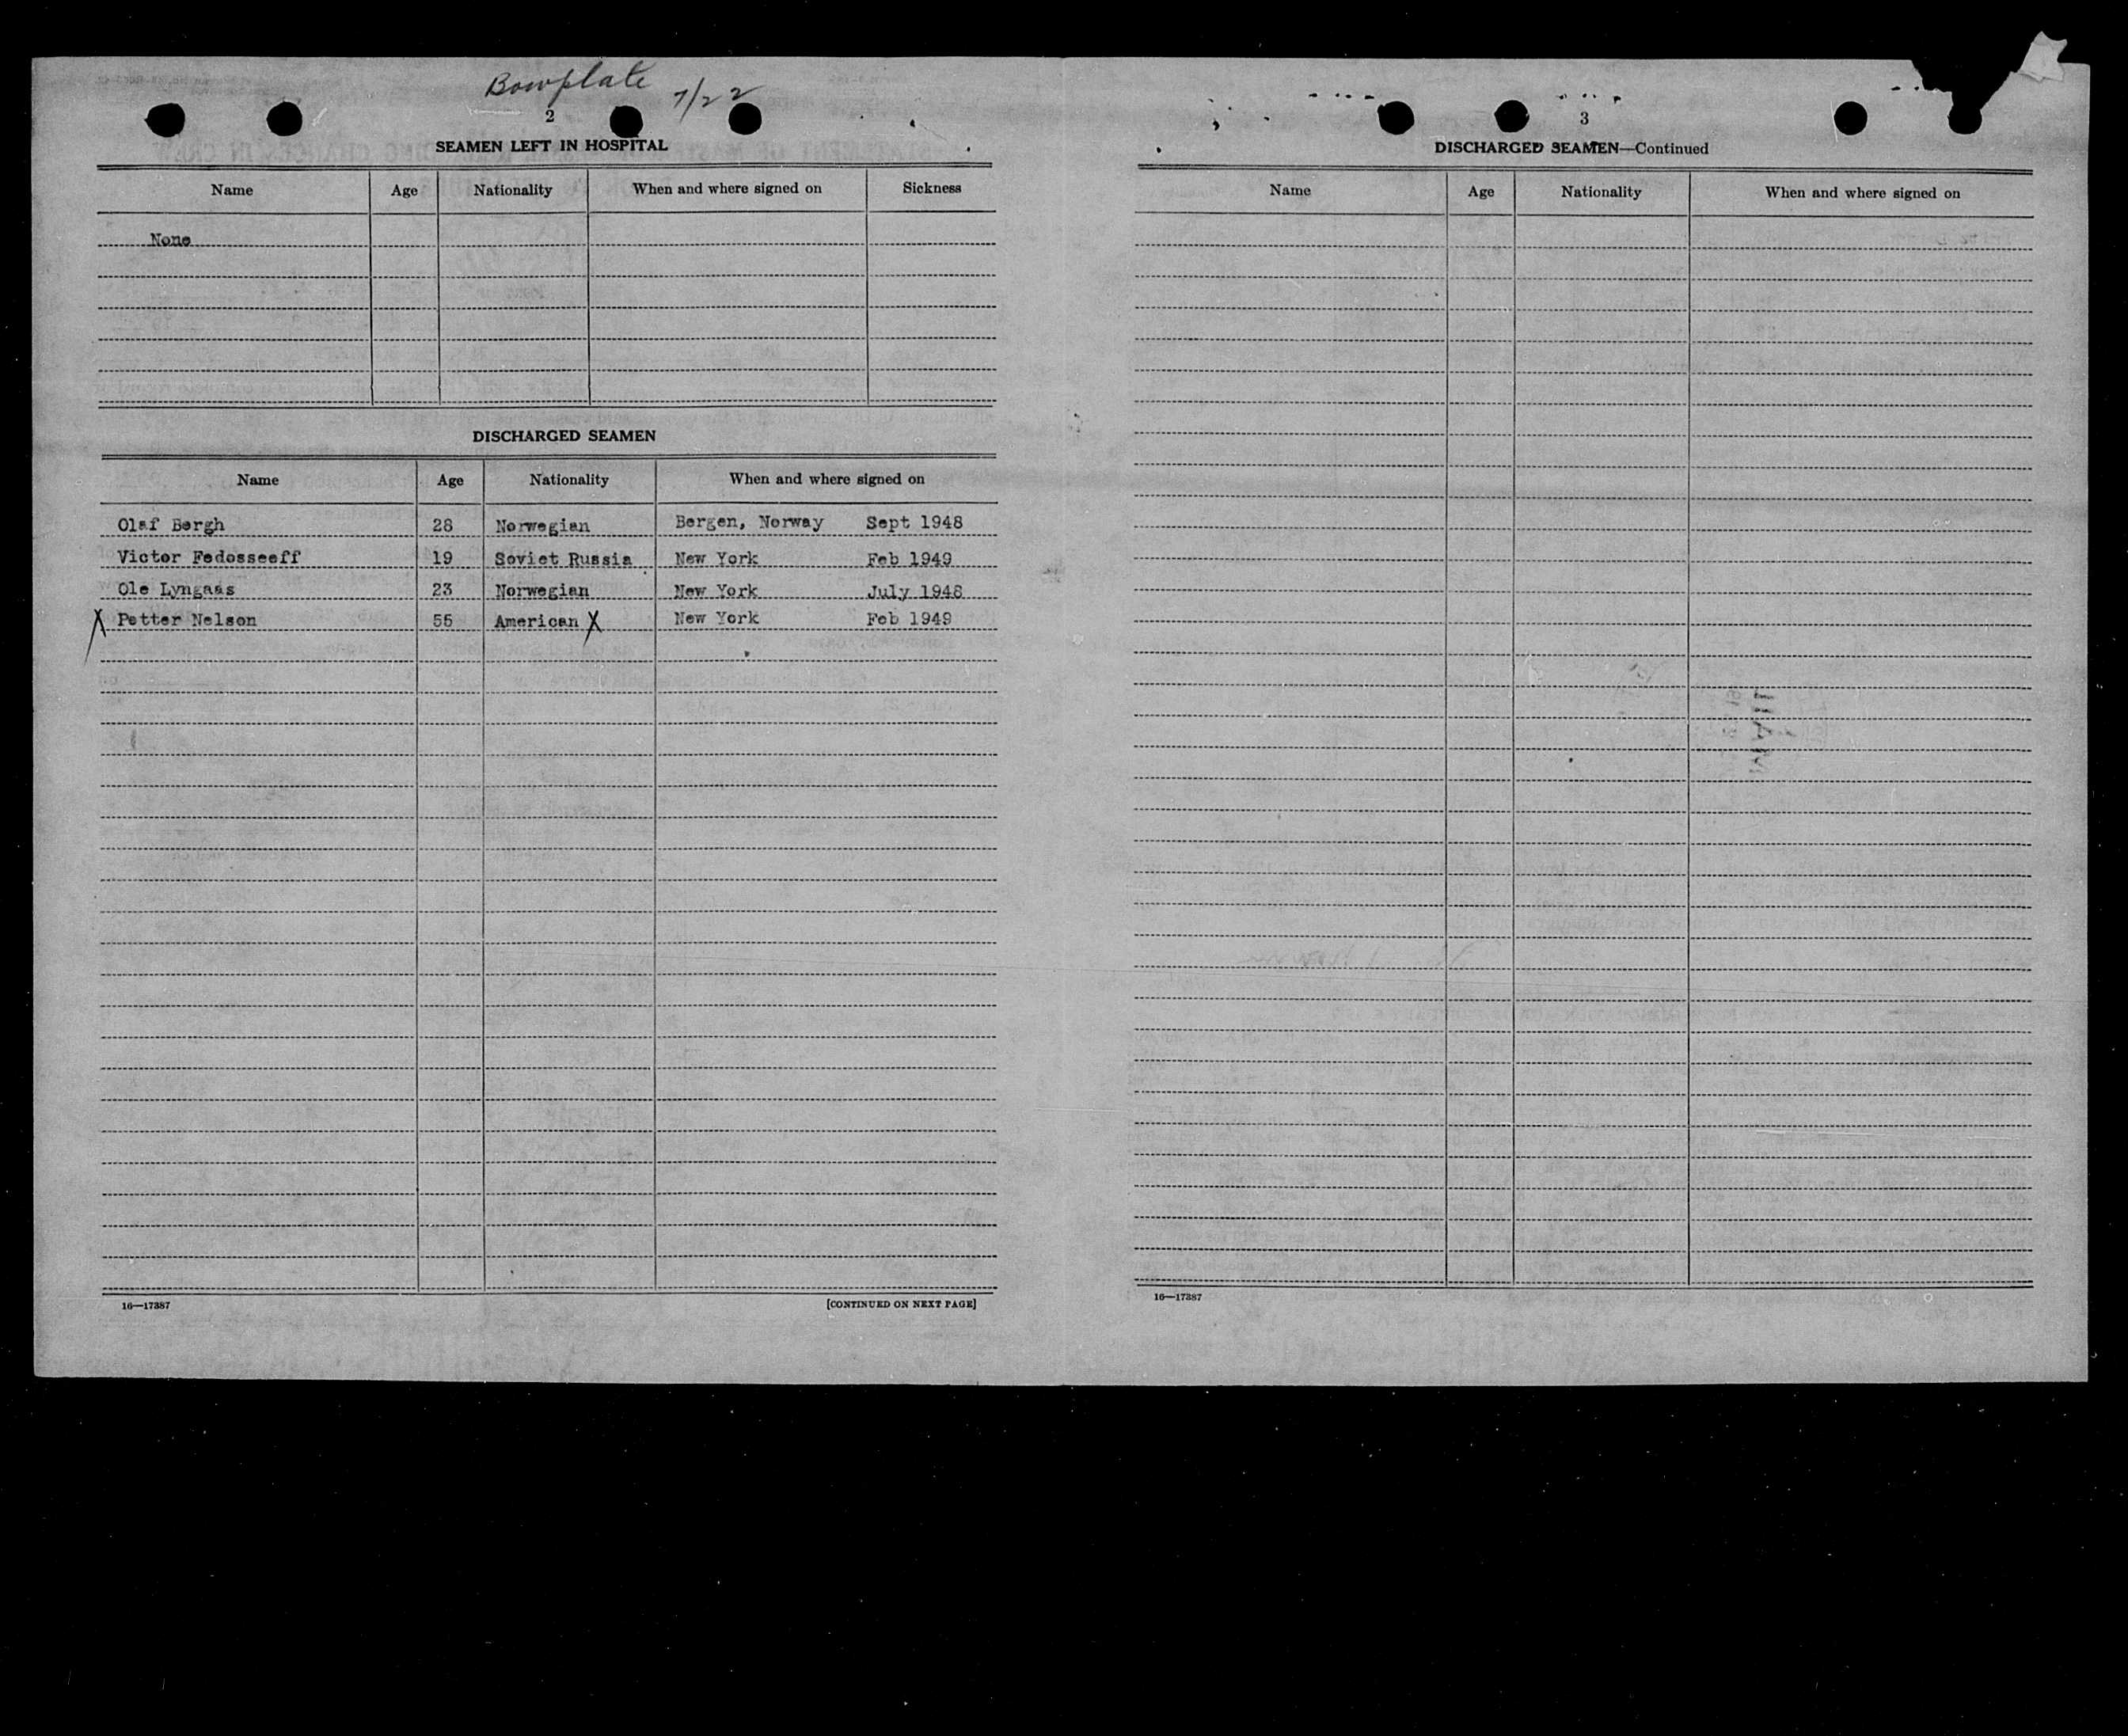 Bowplate 7/22
2
SEAMEN LEFT IN HOSPITAL
Name Age Nationality When and where signed on Sickness
None
DISCHARGED SEAMEN
Name Age Nationality When and where signed on
Olaf Bergh 28 Norwegian Bergen, Norway Sept 1948
Victor Fedosseeff 19 Soviet Russia New York Feb 1949
Ole Lyngaas 23 Norwegian New York July 1948
X Petter Nelson 55 American X New York Feb 1949
16—17387 [CONTINUED ON NEXT PAGE]
3
DISCHARGED SEAMEN—Continued
Name Age Nationality When and where signed on
16—17387